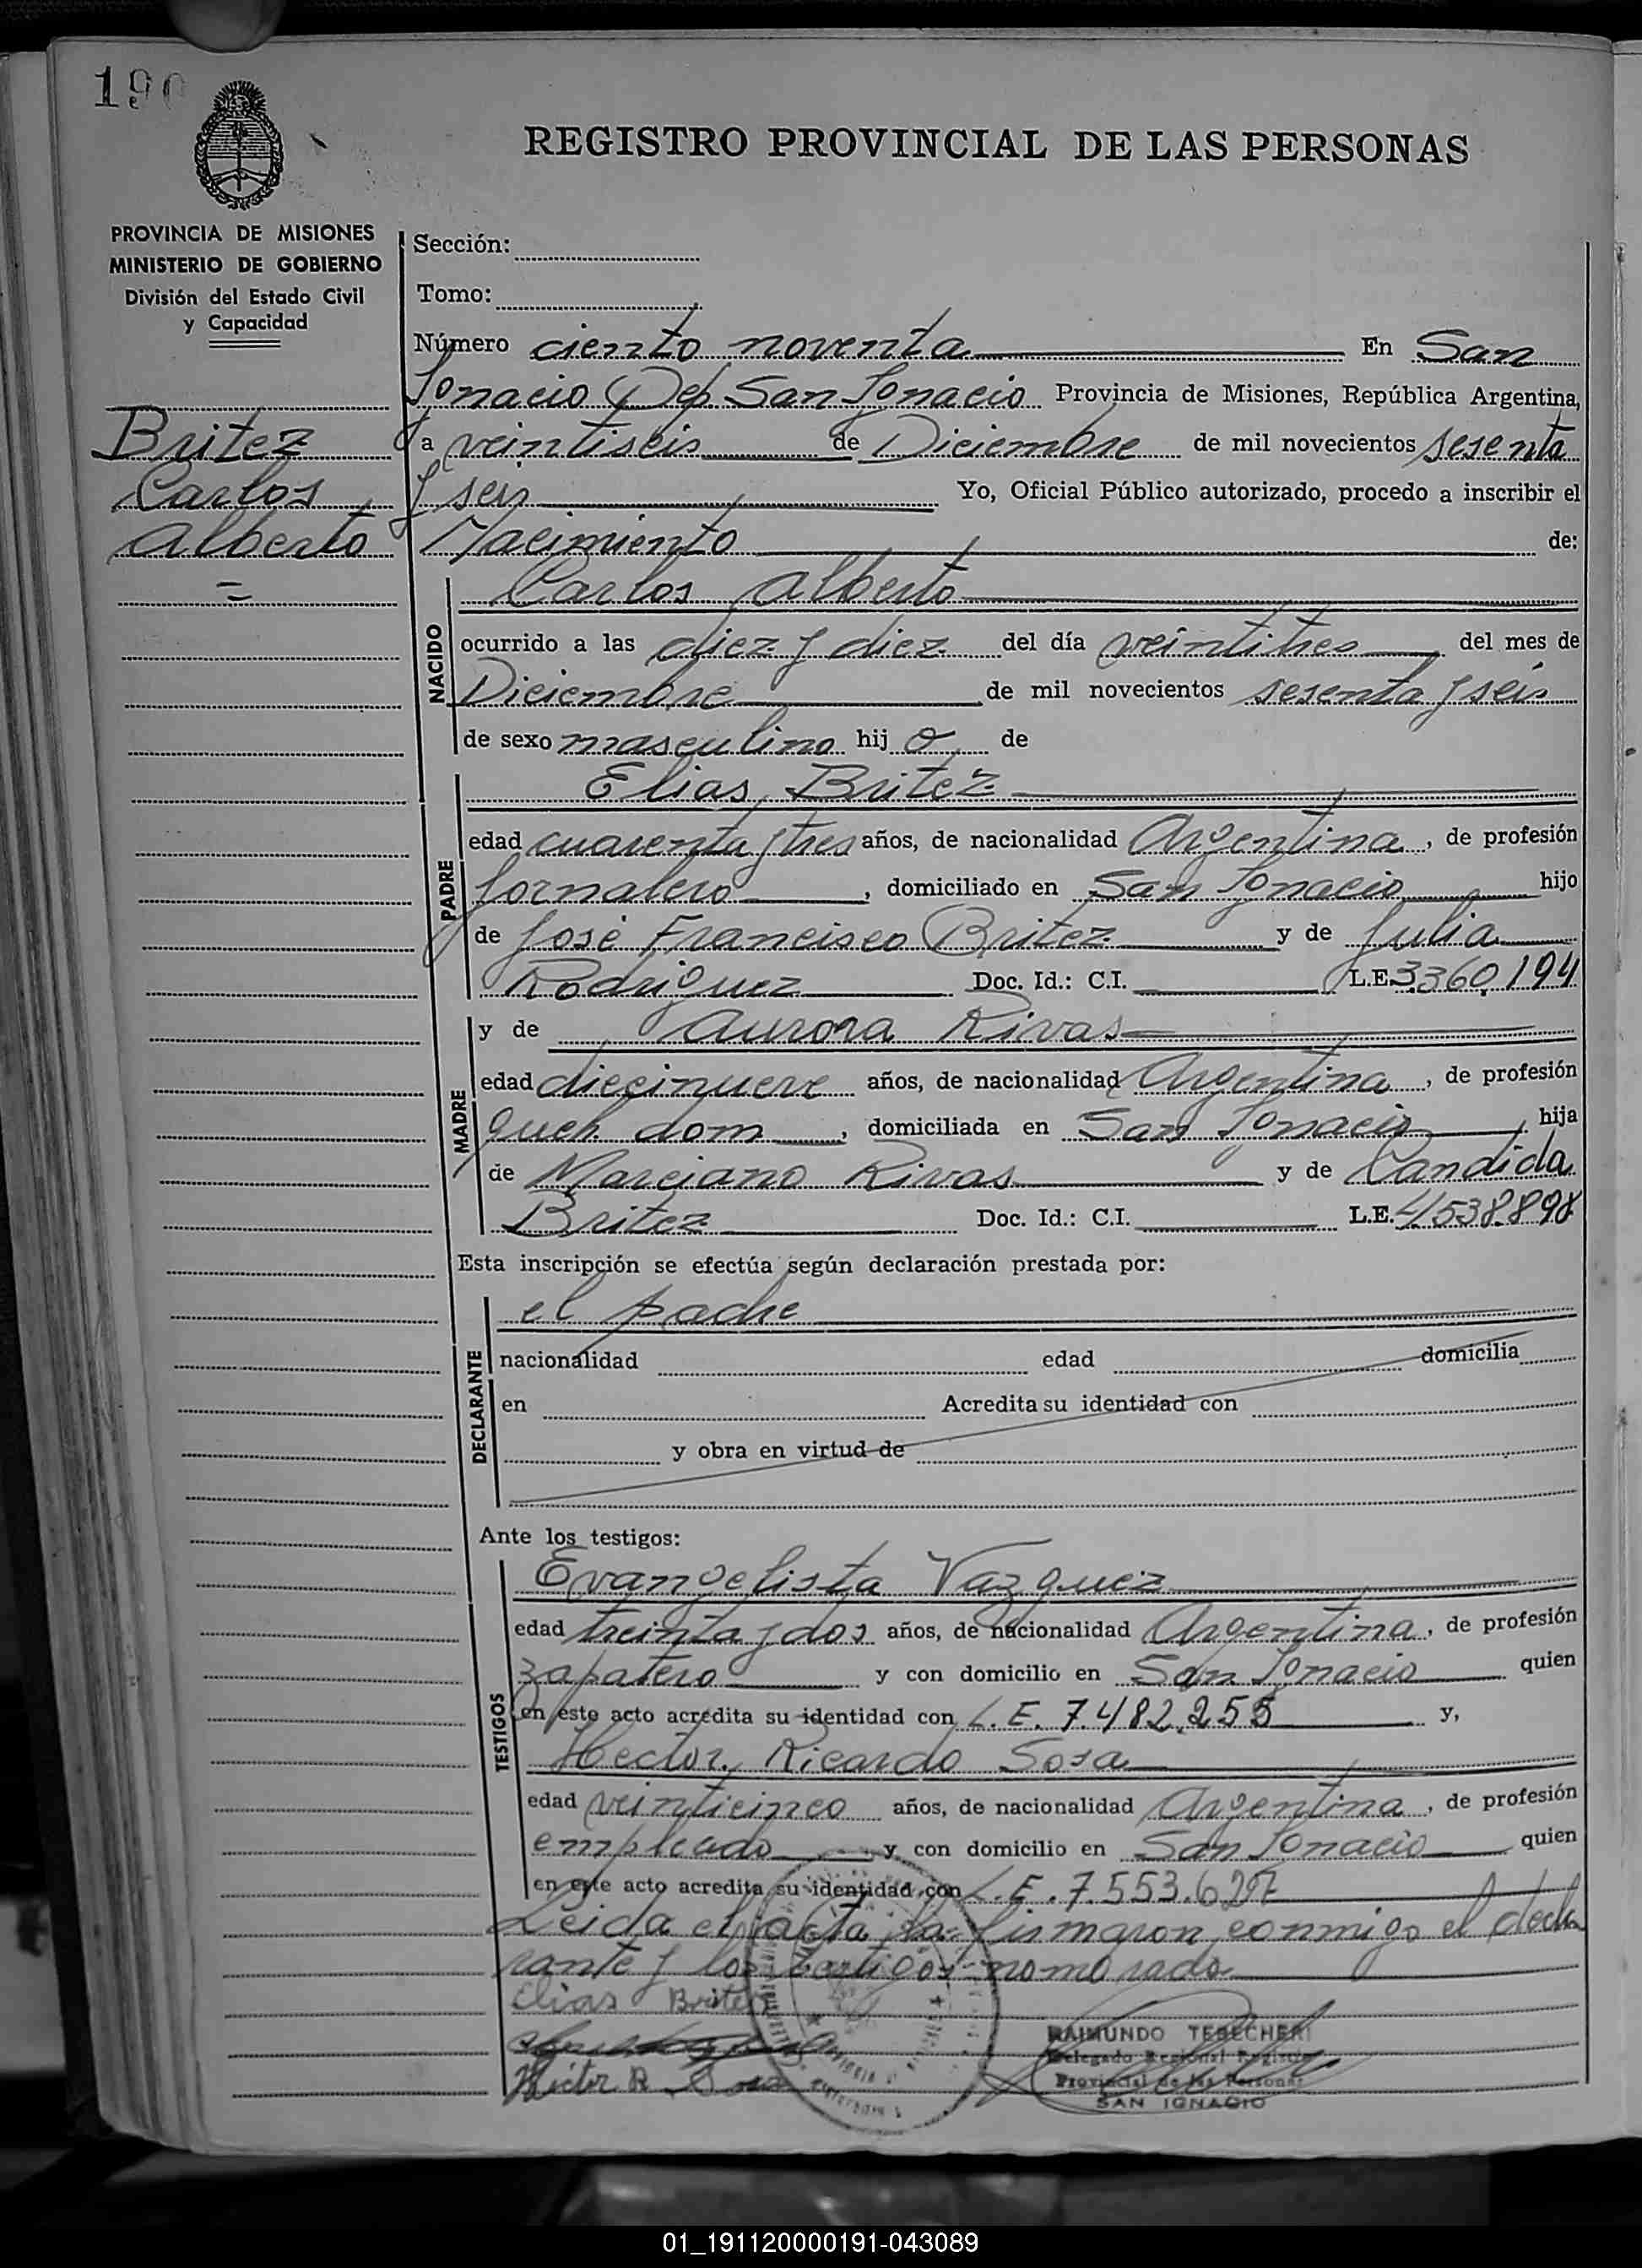 190
REGISTRO PROVINCIAL DE LAS PERSONAS
PROVINCIA DE MISIONES
MINISTERIO DE GOBIERNO
División del Estado Civil
y Capacidad
Britez
Carlos
Alberto
=
Sección:
Tomo:
Número ciento noventa En San
Ignacio Dep. San Ignacio Provincia de Misiones, República Argentina,
a veintiseis de Diciembre de mil novecientos sesenta
y seis Yo, Oficial Público autorizado, procedo a inscribir el
Nacimiento de:
NACIDO
Carlos Alberto
ocurrido a las diez y diez del día veintitres del mes de
Diciembre de mil novecientos sesenta y seis
de sexo masculino hij o de
PADRE
Elias Britez
edad cuarenta y tres años, de nacionalidad Argentina, de profesión
Jornalero, domiciliado en San Ignacio hijo
de José Francisco Britez y de Julia
Rodriguez Doc. Id.: C.I. L.E. 3.360.194
MADRE
y de Aurora Rivas
edad diecinueve años, de nacionalidad Argentina, de profesión
queh. dom, domiciliada en San Ignacio, hija
de Marciano Rivas y de Candida
Britez Doc. Id.: C.I. L.E. 4.538.898
Esta inscripción se efectúa según declaración prestada por:
DECLARANTE
el padre
nacionalidad edad domicilia
en Acredita su identidad con
y obra en virtud de
Ante los testigos:
TESTIGOS
Evangelista Vazquez
edad treinta y dos años, de nacionalidad Argentina, de profesión
zapatero y con domicilio en San Ignacio quien
en este acto acredita su identidad con L.E. 7.482.255 y,
Hector Ricardo Sosa
edad veinticinco años, de nacionalidad Argentina, de profesión
empleado y con domicilio en San Ignacio quien
en este acto acredita su identidad con L.E. 7.553.627
Leida el acta la firmaron conmigo el decla
rante y los testigos nombrados
Elias Britez
Hector R Sosa
RAIMUNDO TEBECHERI
Delegado Regional Registro
Provincial de las Personas
SAN IGNACIO
01_191120000191-043089